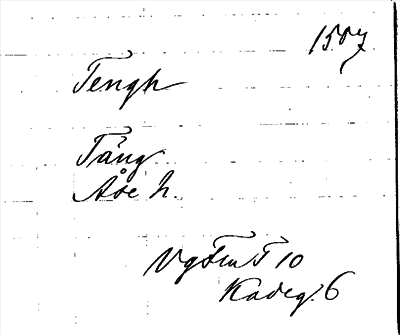 1507
Tengh
Tång
Åse h.
Vg Fru T 10
Kadeg. 6